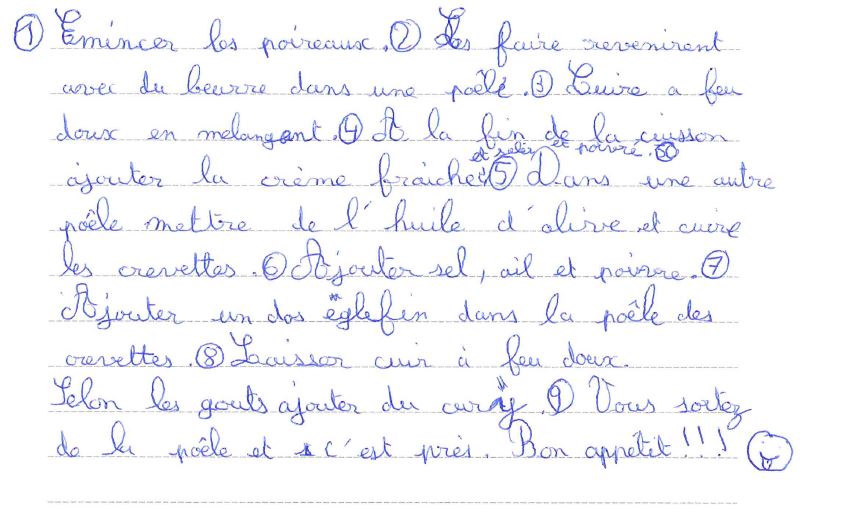 ① Emincer les poireaux. ② Les faire revenirent
avec du beurre dans une poêle. ③ Cuire a feu
doux en melangent. ④ A la fin de la cuisson
et seler et poivré.
ajouter la crème fraiche ⑤ Dans une autre
poêle mettre de l'huile d'olive et cuire
les crevettes. ⑥ Ajouter sel, ail et poivre. ⑦
Ajouter un dos églefin dans la poêle des
crevettes. ⑧ Laisser cuir à feu doux.
Selon les gouts ajouter du cury. ⑨ Vous sortez
de la poêle et c'est près. Bon appétit!!!